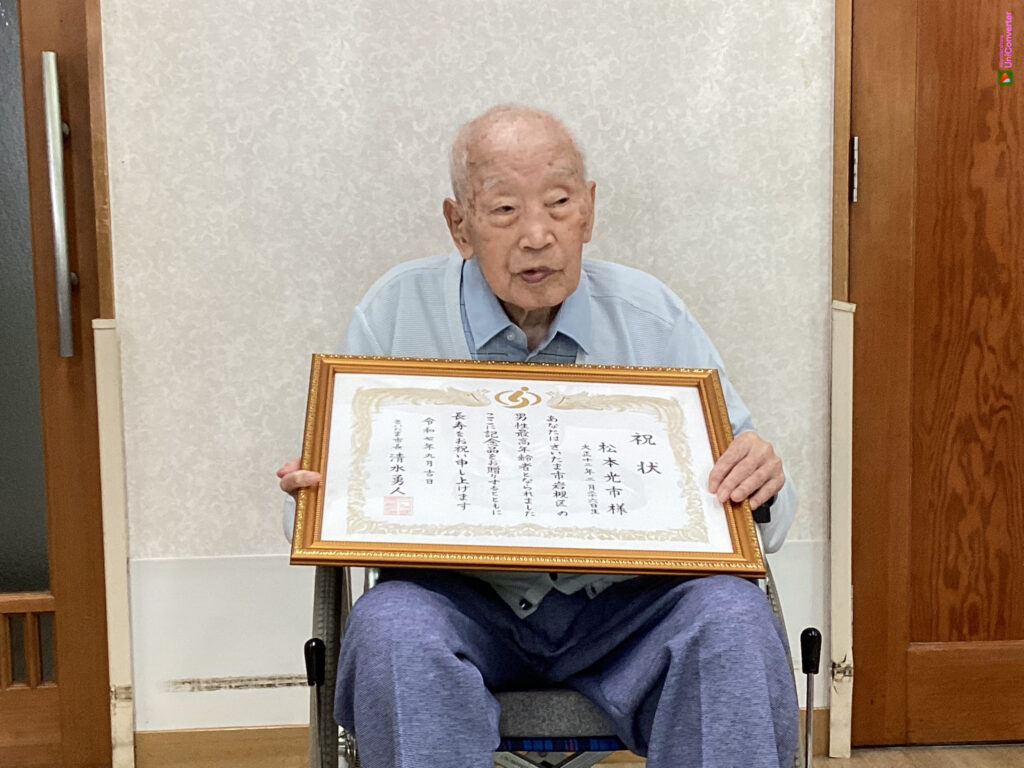 祝状
松本光市様
大正十二年三月二十六日生
あなたはさいたま市岩槻区の
男性最高年齢者となられました
ここに記念品をお贈りするとともに
長寿をお祝い申し上げます
令和七年九月吉日
さいたま市長 清水勇人
UniConverter